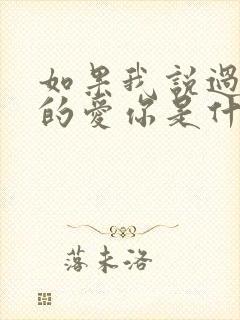 如果我說過
的愛你是什
落未洛